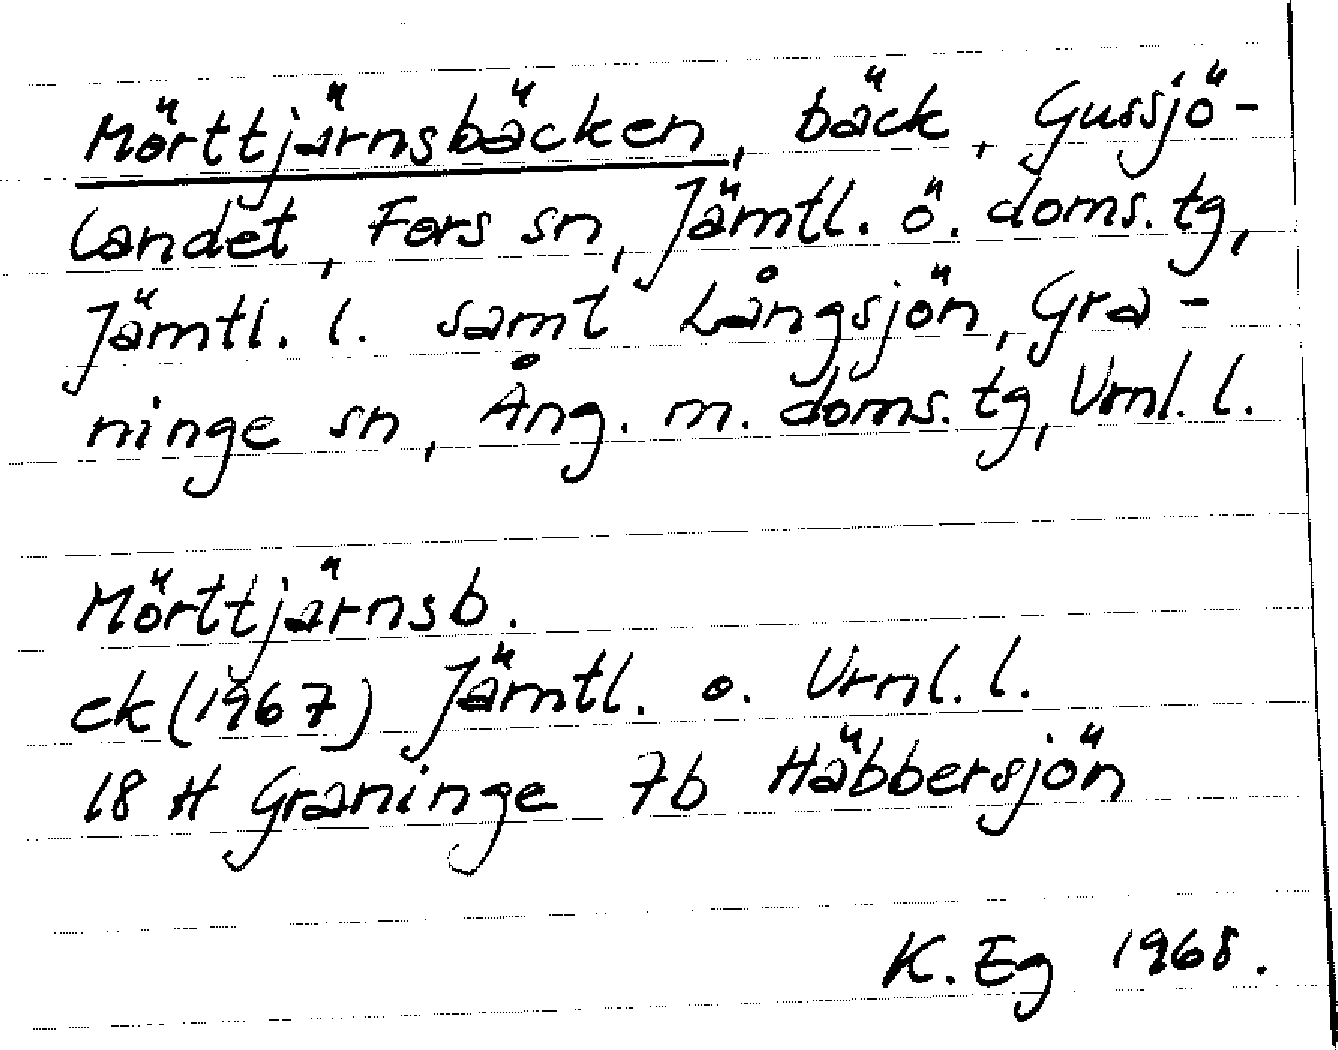 Mörttjärnsbäcken, bäck, Gussjö-
landet, Fors sn, Jämtl. ö. doms. tg,
Jämtl. l. samt Långsjön, Gra-
ninge sn, Ång. m. doms. tg, Vrnl. l.
Mörttjärnsb.
ek (1967) Jämtl. o. Vrnl. l.
18 H Graninge 7b Häbbersjön
K. Eg 1968.